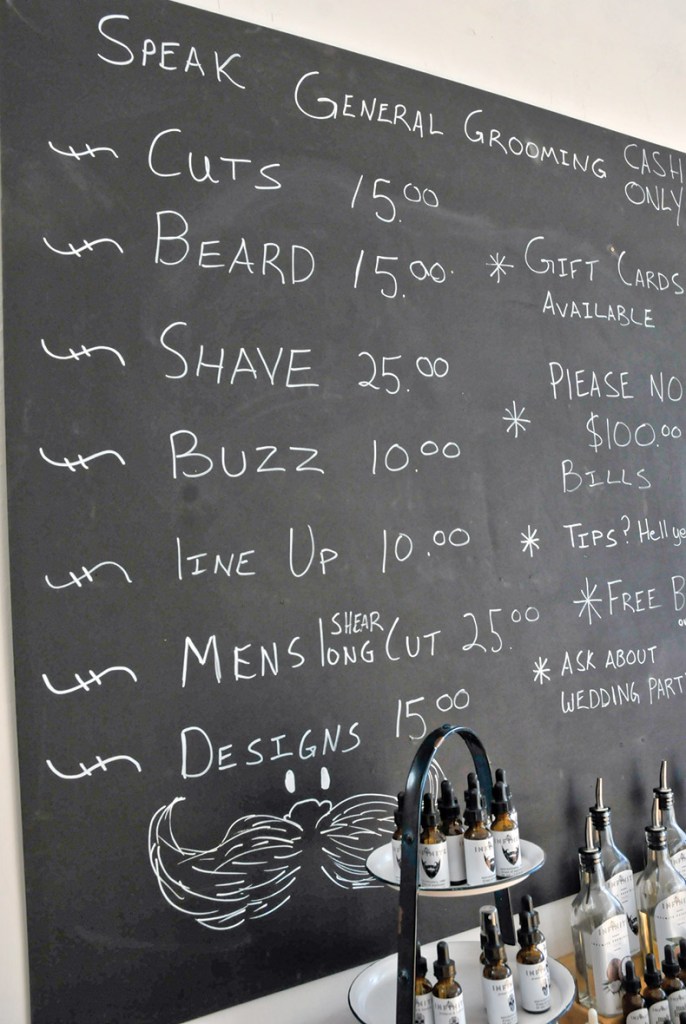 SPEAK GENERAL GROOMING
CASH
ONLY
CUTS 15.00
BEARD 15.00
SHAVE 25.00
BUZZ 10.00
LINE UP 10.00
MENS LONG SHEAR CUT 25.00
DESIGNS 15.00
* GIFT CARDS
AVAILABLE
* PLEASE NO
$100.00
BILLS
* TIPS? Hell ye
* FREE B
* ASK ABOUT
WEDDING PART